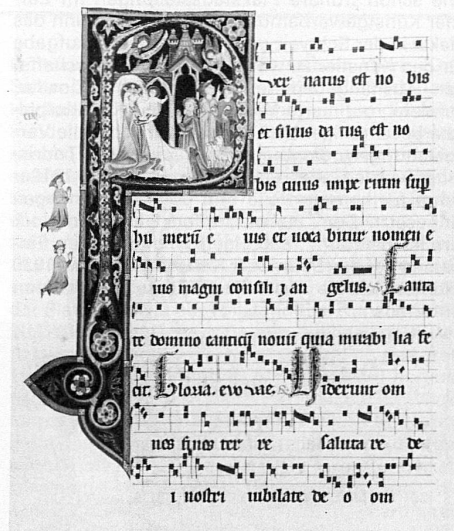 uer natus est no bis
et filius da tus est no
bis cuius impe rium sup
hu merū e ius et uoca bitur nomen e
ius magni consili j an gelus. Canta
te domino canticū nouū quia mirabi lia fe
cit. Gloria. euouae. Viderunt om
nes fines ter re saluta re de
i nostri iubilate de o om